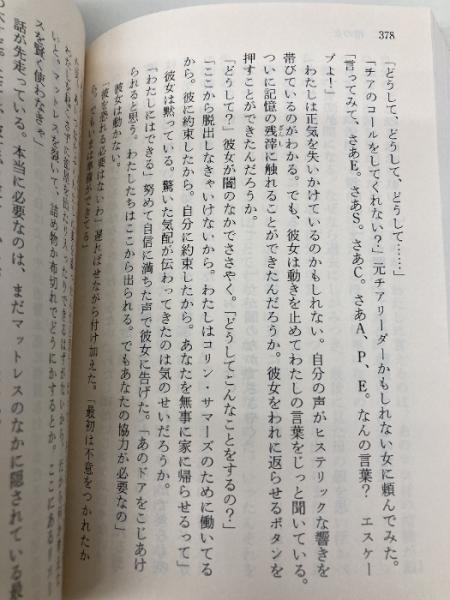 378
「どうして、どうして、どうして……」
「チアのコールをしてくれない？」元チアリーダーかもしれない女に頼んでみた。
「言ってみて、さあE。さあS。さあC。さあA、P、E。なんの言葉？　エスケー
プよ！」
わたしは正気を失いかけているのかもしれない。自分の声がヒステリックな響きを
帯びているのがわかる。でも、彼女は動きを止めてわたしの言葉をじっと聞いている。
ついに記憶の残滓に触れることができたんだろうか。彼女をわれに返らせるボタンを
押すことができたんだろうか。
「どうして？」彼女が闇のなかでささやく。「どうしてこんなことをするの？」
「ここから脱出しなきゃいけないから。わたしはコリン・サマーズのために働いてる
から。彼に約束したから。自分に約束したから。あなたを無事に家に帰らせるって」
彼女は黙っている。驚いた気配が伝わってきたのは気のせいだろうか。
「わたしにはできる」努めて自信に満ちた声で彼女に告げた。「あのドアをこじあけ
られると思う。わたしたちはここから出られる。でもあなたの協力が必要なの」
彼女は動かない。
「彼を恐れる必要はないわ」遅ればせながら付け加えた。「最初は不意をつかれたか
ら。でもいまは準備ができてる」
いと。マットレスを裂いて、詰め物か布切れでどうにかするとか。
スを賢く使わなきゃ」
話が先走っている。本当に必要なのは、まだマットレスのなかに隠されている最